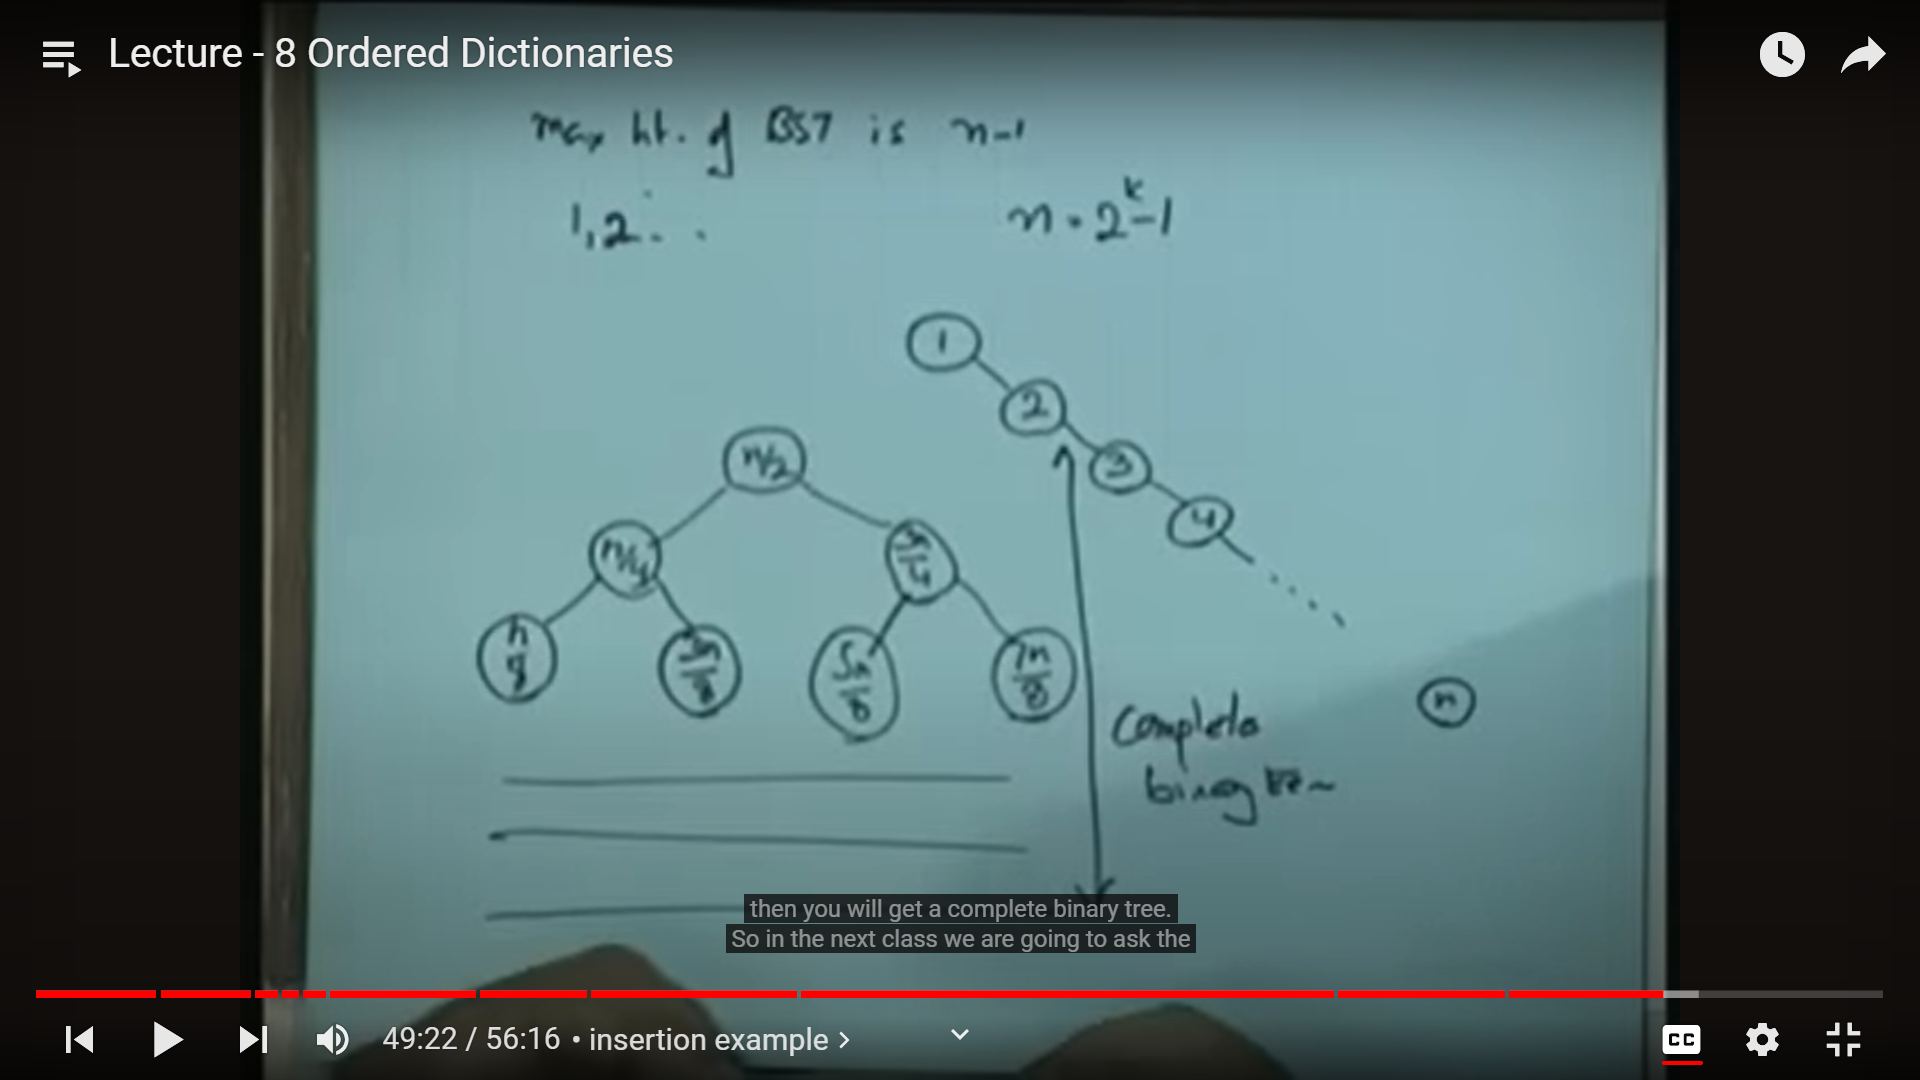 Lecture - 8 Ordered Dictionaries
max ht. of BST is n-1
1,2 . . .
n = 2^k-1
1
2
3
4
n
n/2
n/4
3n/4
n/8
3n/8
5n/8
7n/8
Complete
binary tree
then you will get a complete binary tree.
So in the next class we are going to ask the
49:22 / 56:16 • insertion example >
CC